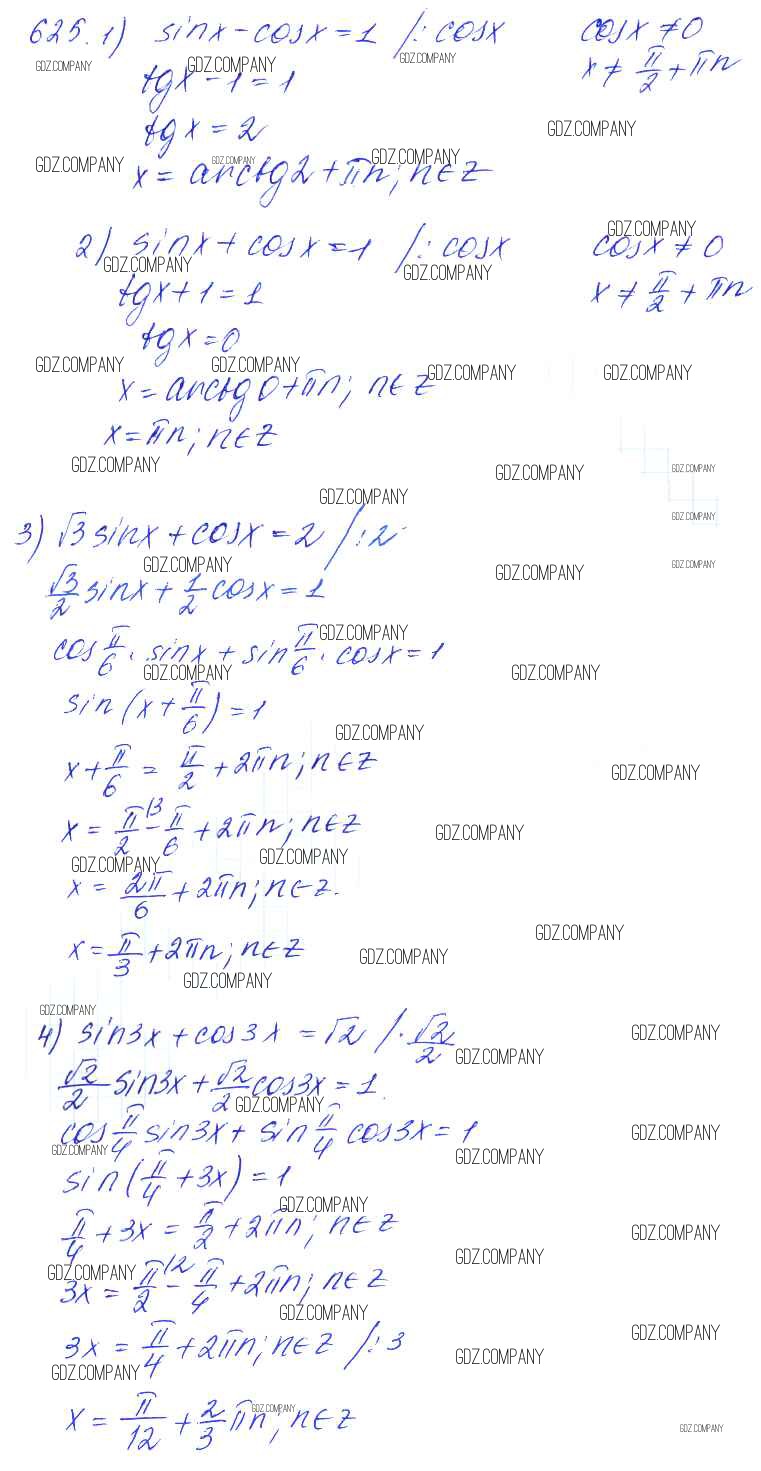 625. 1) sinx - cosx = 1 /: cosx cosx ≠ 0
GDZ.COMPANY GDZ.COMPANY GDZ.COMPANY
tgx - 1 = 1 x ≠ π/2 + πn
tgx = 2 GDZ.COMPANY
GDZ.COMPANY GDZ.COMPANY GDZ.COMPANY
x = arctg2 + πn; n∈Z
GDZ.COMPANY
2) sinx + cosx = 1 /: cosx cosx ≠ 0
GDZ.COMPANY GDZ.COMPANY
tgx + 1 = 1 x ≠ π/2 + πn
tgx = 0
GDZ.COMPANY GDZ.COMPANY GDZ.COMPANY GDZ.COMPANY
x = arctg0 + πn; n∈Z
x = πn; n∈Z
GDZ.COMPANY GDZ.COMPANY GDZ.COMPANY
GDZ.COMPANY GDZ.COMPANY
3) √3 sinx + cosx = 2 /: 2
GDZ.COMPANY GDZ.COMPANY GDZ.COMPANY
√3/2 sinx + 1/2 cosx = 1
GDZ.COMPANY
cos π/6 · sinx + sin π/6 · cosx = 1
GDZ.COMPANY GDZ.COMPANY
sin (x + π/6) = 1
GDZ.COMPANY
x + π/6 = π/2 + 2πn; n∈Z
GDZ.COMPANY
x = π/2 \3 - π/6 + 2πn; n∈Z GDZ.COMPANY
GDZ.COMPANY GDZ.COMPANY
x = 2π/6 + 2πn; n∈Z.
GDZ.COMPANY
x = π/3 + 2πn; n∈Z GDZ.COMPANY
GDZ.COMPANY
GDZ.COMPANY
4) sin3x + cos3x = √2 /· √2/2 GDZ.COMPANY
GDZ.COMPANY
√2/2 sin3x + √2/2 cos3x = 1
GDZ.COMPANY
cos π/4 sin3x + sin π/4 cos3x = 1 GDZ.COMPANY
GDZ.COMPANY GDZ.COMPANY
sin (π/4 + 3x) = 1
GDZ.COMPANY
π/4 + 3x = π/2 + 2πn; n∈Z GDZ.COMPANY
GDZ.COMPANY GDZ.COMPANY
3x = π/2 \2 - π/4 + 2πn; n∈Z
GDZ.COMPANY
3x = π/4 + 2πn; n∈Z /: 3 GDZ.COMPANY
GDZ.COMPANY GDZ.COMPANY
x = π/12 + 2/3 πn; n∈Z
GDZ.COMPANY GDZ.COMPANY